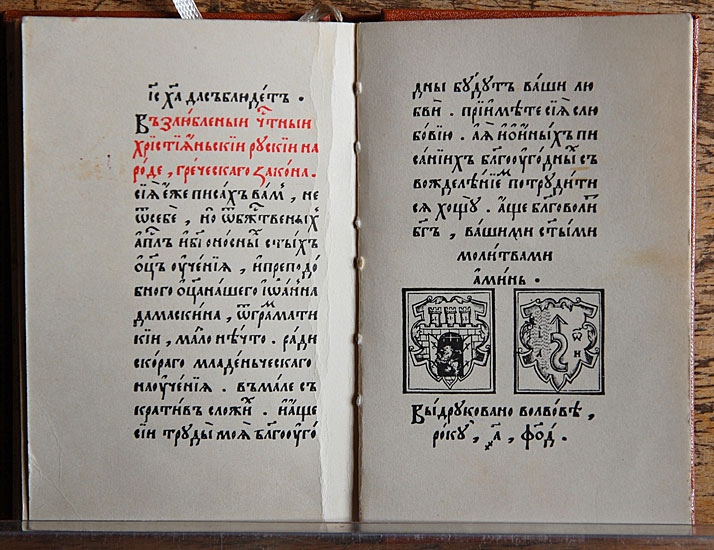 і҃с х҃а да съблюдетъ .
Възлюбленыи ч҃тныи
хрїстїѧньскїи рускїи на
роде , греческаго закона .
сїѧ еже писахъ вам , не
ѿ себе , но ѿ бж҃твеныхъ
ап҃лъ и бг҃оносныⷯ ст҃ыхъ
ѿц҃ъ оучениѧ , и преподо
бного ѿц҃а нашего іѡанна
дамаскина , ѿ граматⷨи
кїи , мало нѣчто . ради
скораго младеньческаго
наоученїѧ . въмале съ
кративъ сложиⷯ . и аще
сїи труды моѧ бл҃гооуго
дны будутъ ваши лю
бви . прїимѣте сїѧ слю
бовїю . а ѧ и ѡиныхъ пи
санїихъ бл҃гооугодныⷯ съ
вожделѣнїеⷨ потрудити
сѧ хощу . аще бл҃говолиⷮ
бг҃ъ , вашими ст҃ыми
молитвами
аминь .
ѡ
А Н
Выдруковано вольвовѣ ,
року , ҂а , фо҃д .